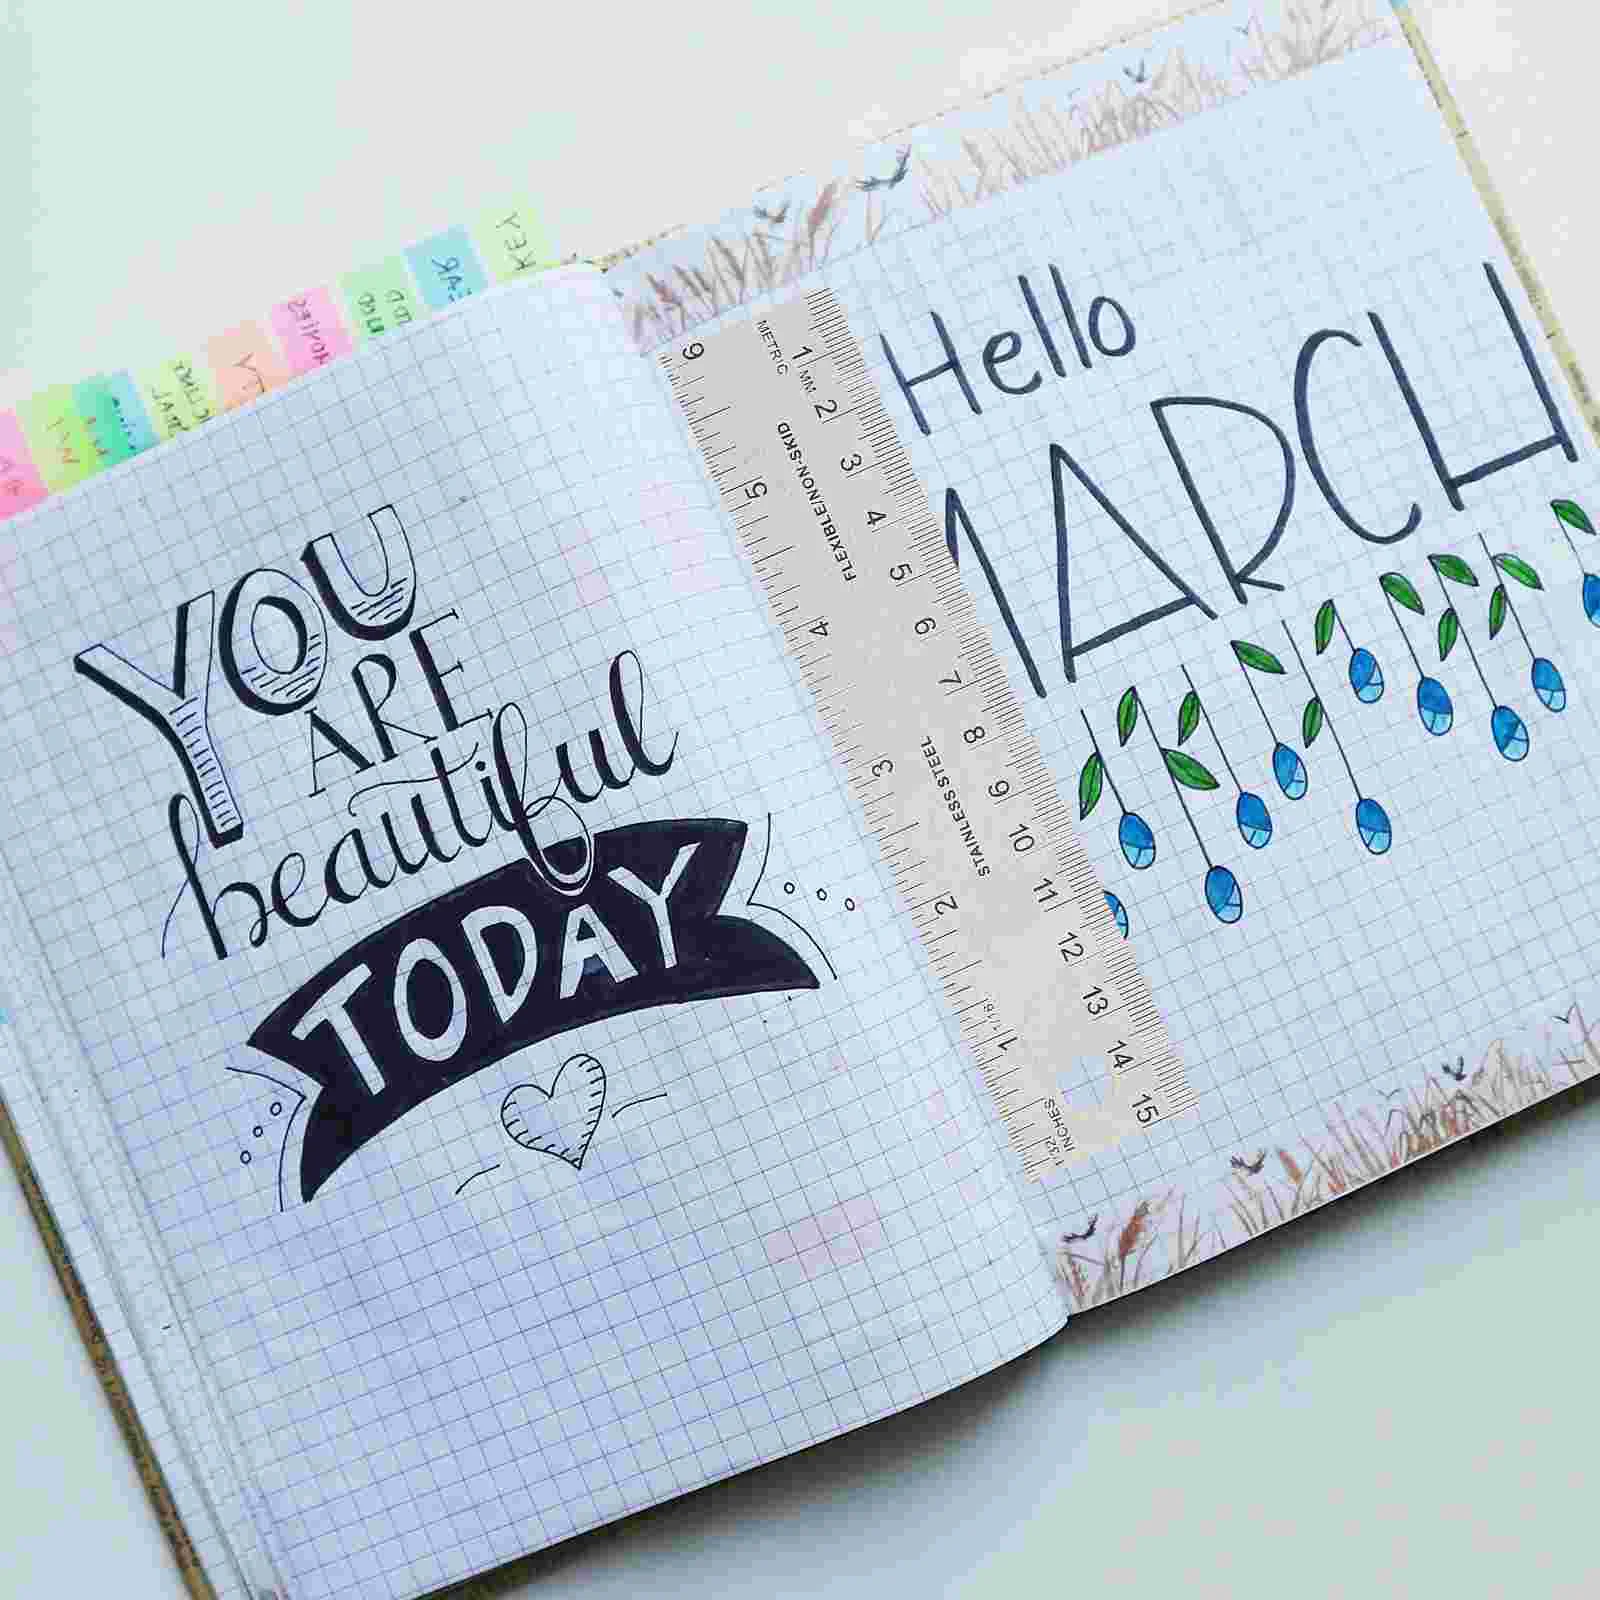 YOU
ARE
beautiful
TODAY
Hello
MARCH
KEY
METRIC
1 MM 2 3 4 5 6 7 8 9 10 11 12 13 14 15
FLEXIBLE/NON-SKID
STAINLESS STEEL
6 5 4 3 2 1
1/16
1/32
INCHES